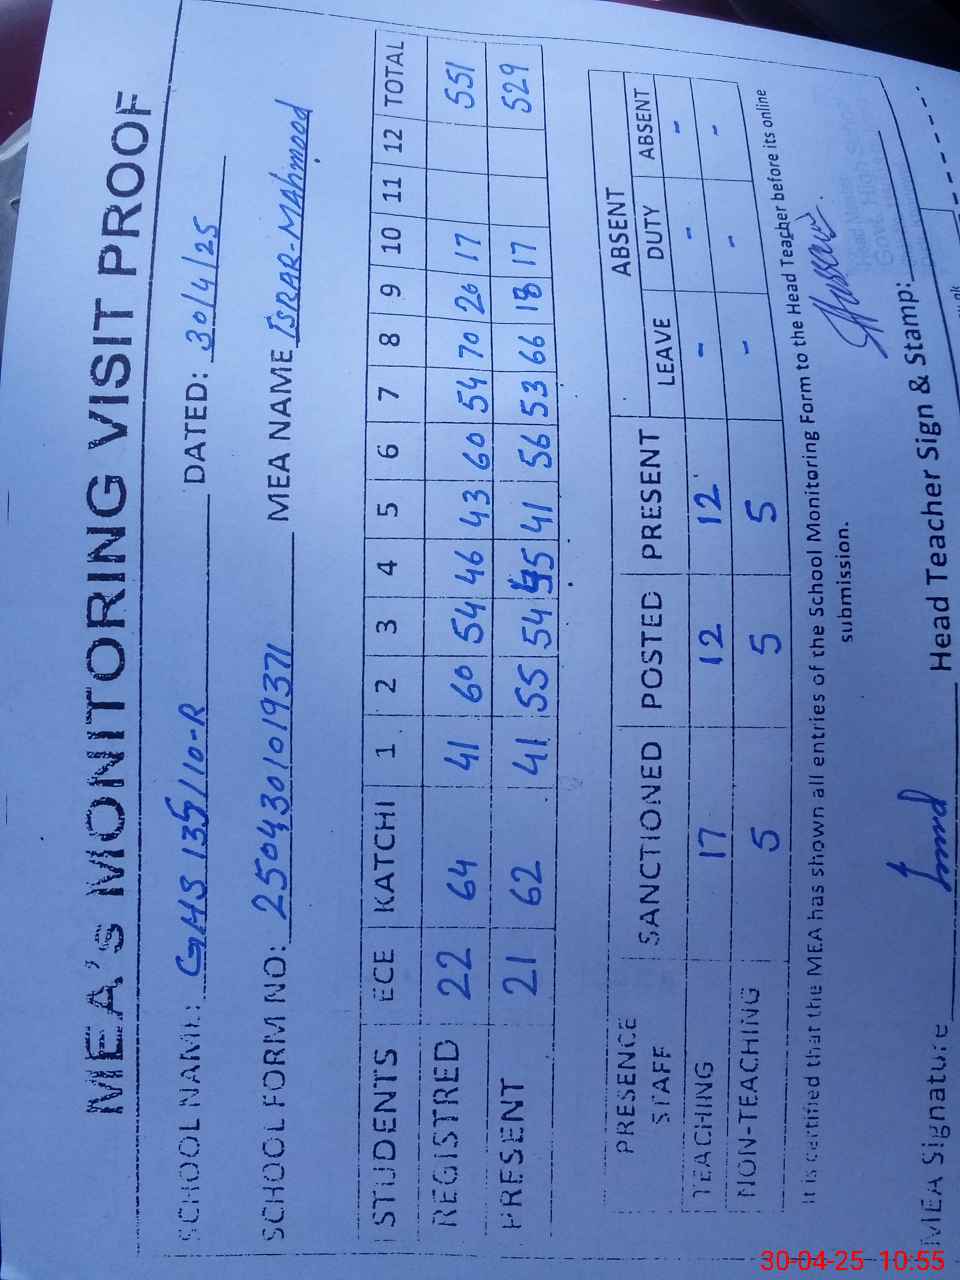 MEA's MONITORING VISIT PROOF
SCHOOL NAME: GHS 135/10-R DATED: 30/4/25
SCHOOL FORM NO: 2504301019371 MEA NAME ISRAR-MAhmood
STUDENTS ECE KATCHI 1 2 3 4 5 6 7 8 9 10 11 12 TOTAL
REGISTRED 22 64 41 60 54 46 43 60 54 70 20 17 551
PRESENT 21 62 41 55 54 45 41 56 53 66 18 17 529
PRESENCE STAFF SANCTIONED POSTED PRESENT ABSENT
LEAVE DUTY ABSENT
TEACHING 17 12 12 - - -
NON-TEACHING 5 5 5 - - -
It is certified that the MEA has shown all entries of the School Monitoring Form to the Head Teacher before its online
submission.
MEA Signature Head Teacher Sign & Stamp:
30-04-25 10:55